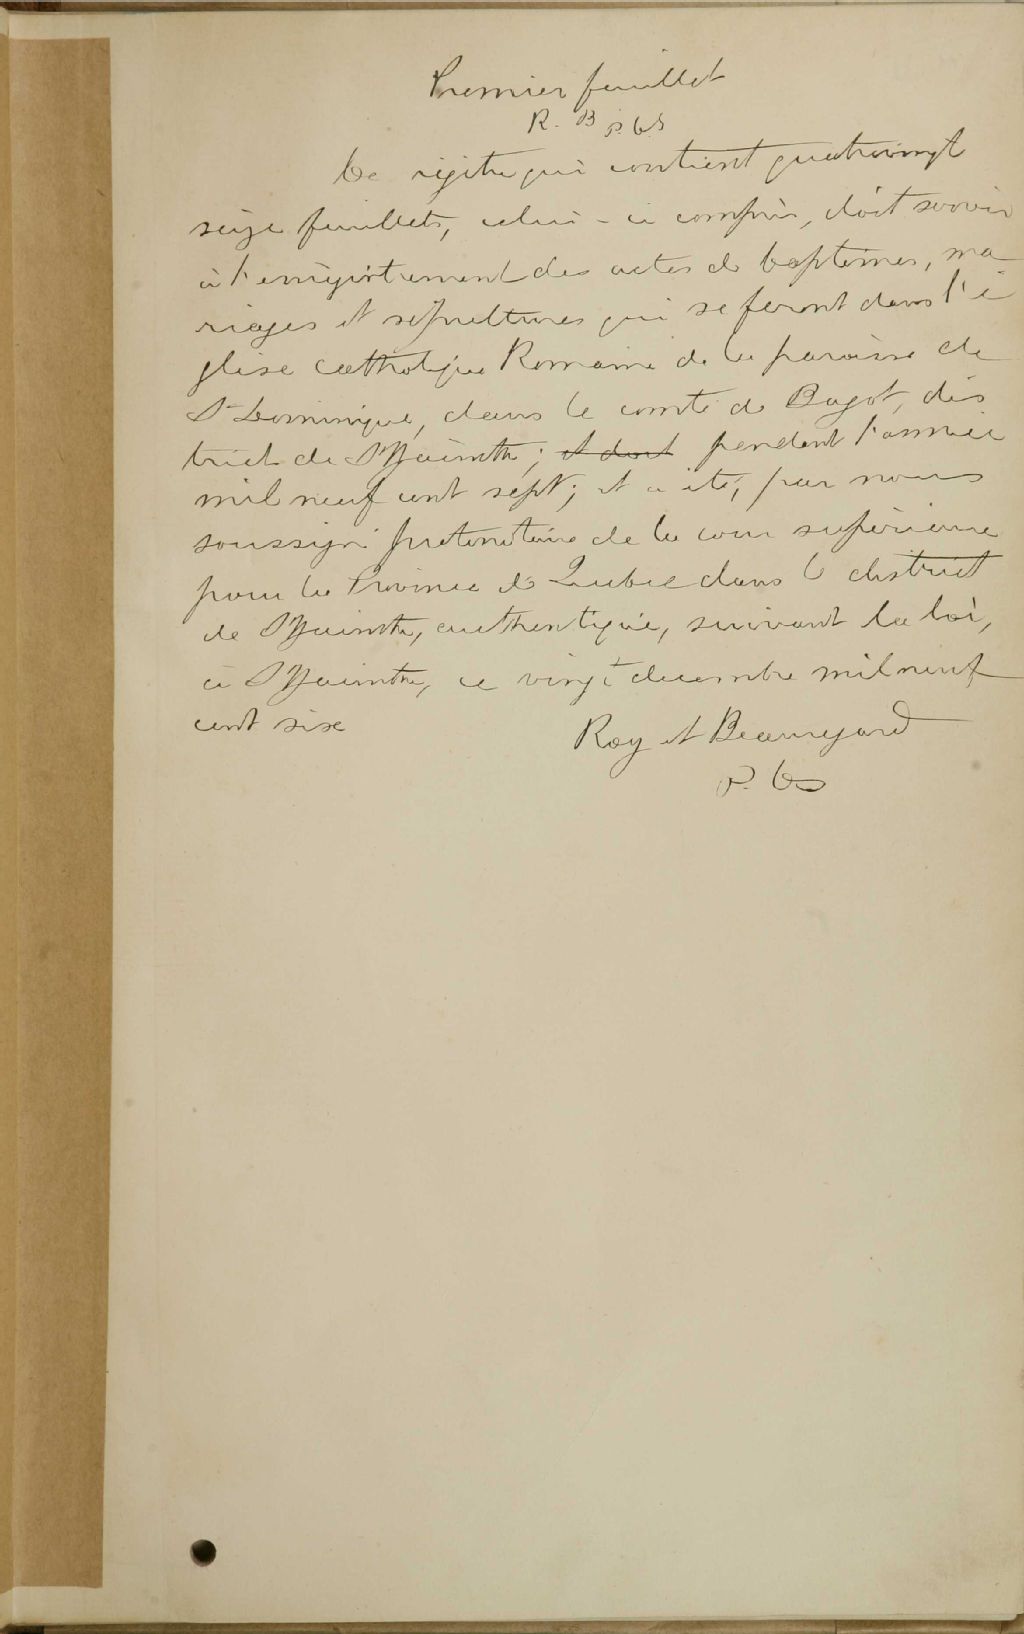 Premier feuillet
R. B P.C.S
Ce régitre qui contient quatrevingt
seize feuillets, celui-ci compris, doit servir
à l'enrégistrement des actes de baptêmes, ma
riages et sépultures qui se feront dans l'é
glise catholique Romaine de la paroisse de
St Dominique, dans le comté de Bagot, dis
trict de St Hyacinthe; et dont pendant l'année
mil neuf cent sept; et a été, par nous
soussigné protonotaire de la cour supérieure
pour la Province de Quebec dans le district
de St Hyacinthe, authentiqué, suivant la loi,
à St Hyacinthe, ce vingt decembre mil neuf
cent six
Roy et Beauregard
P. C.S